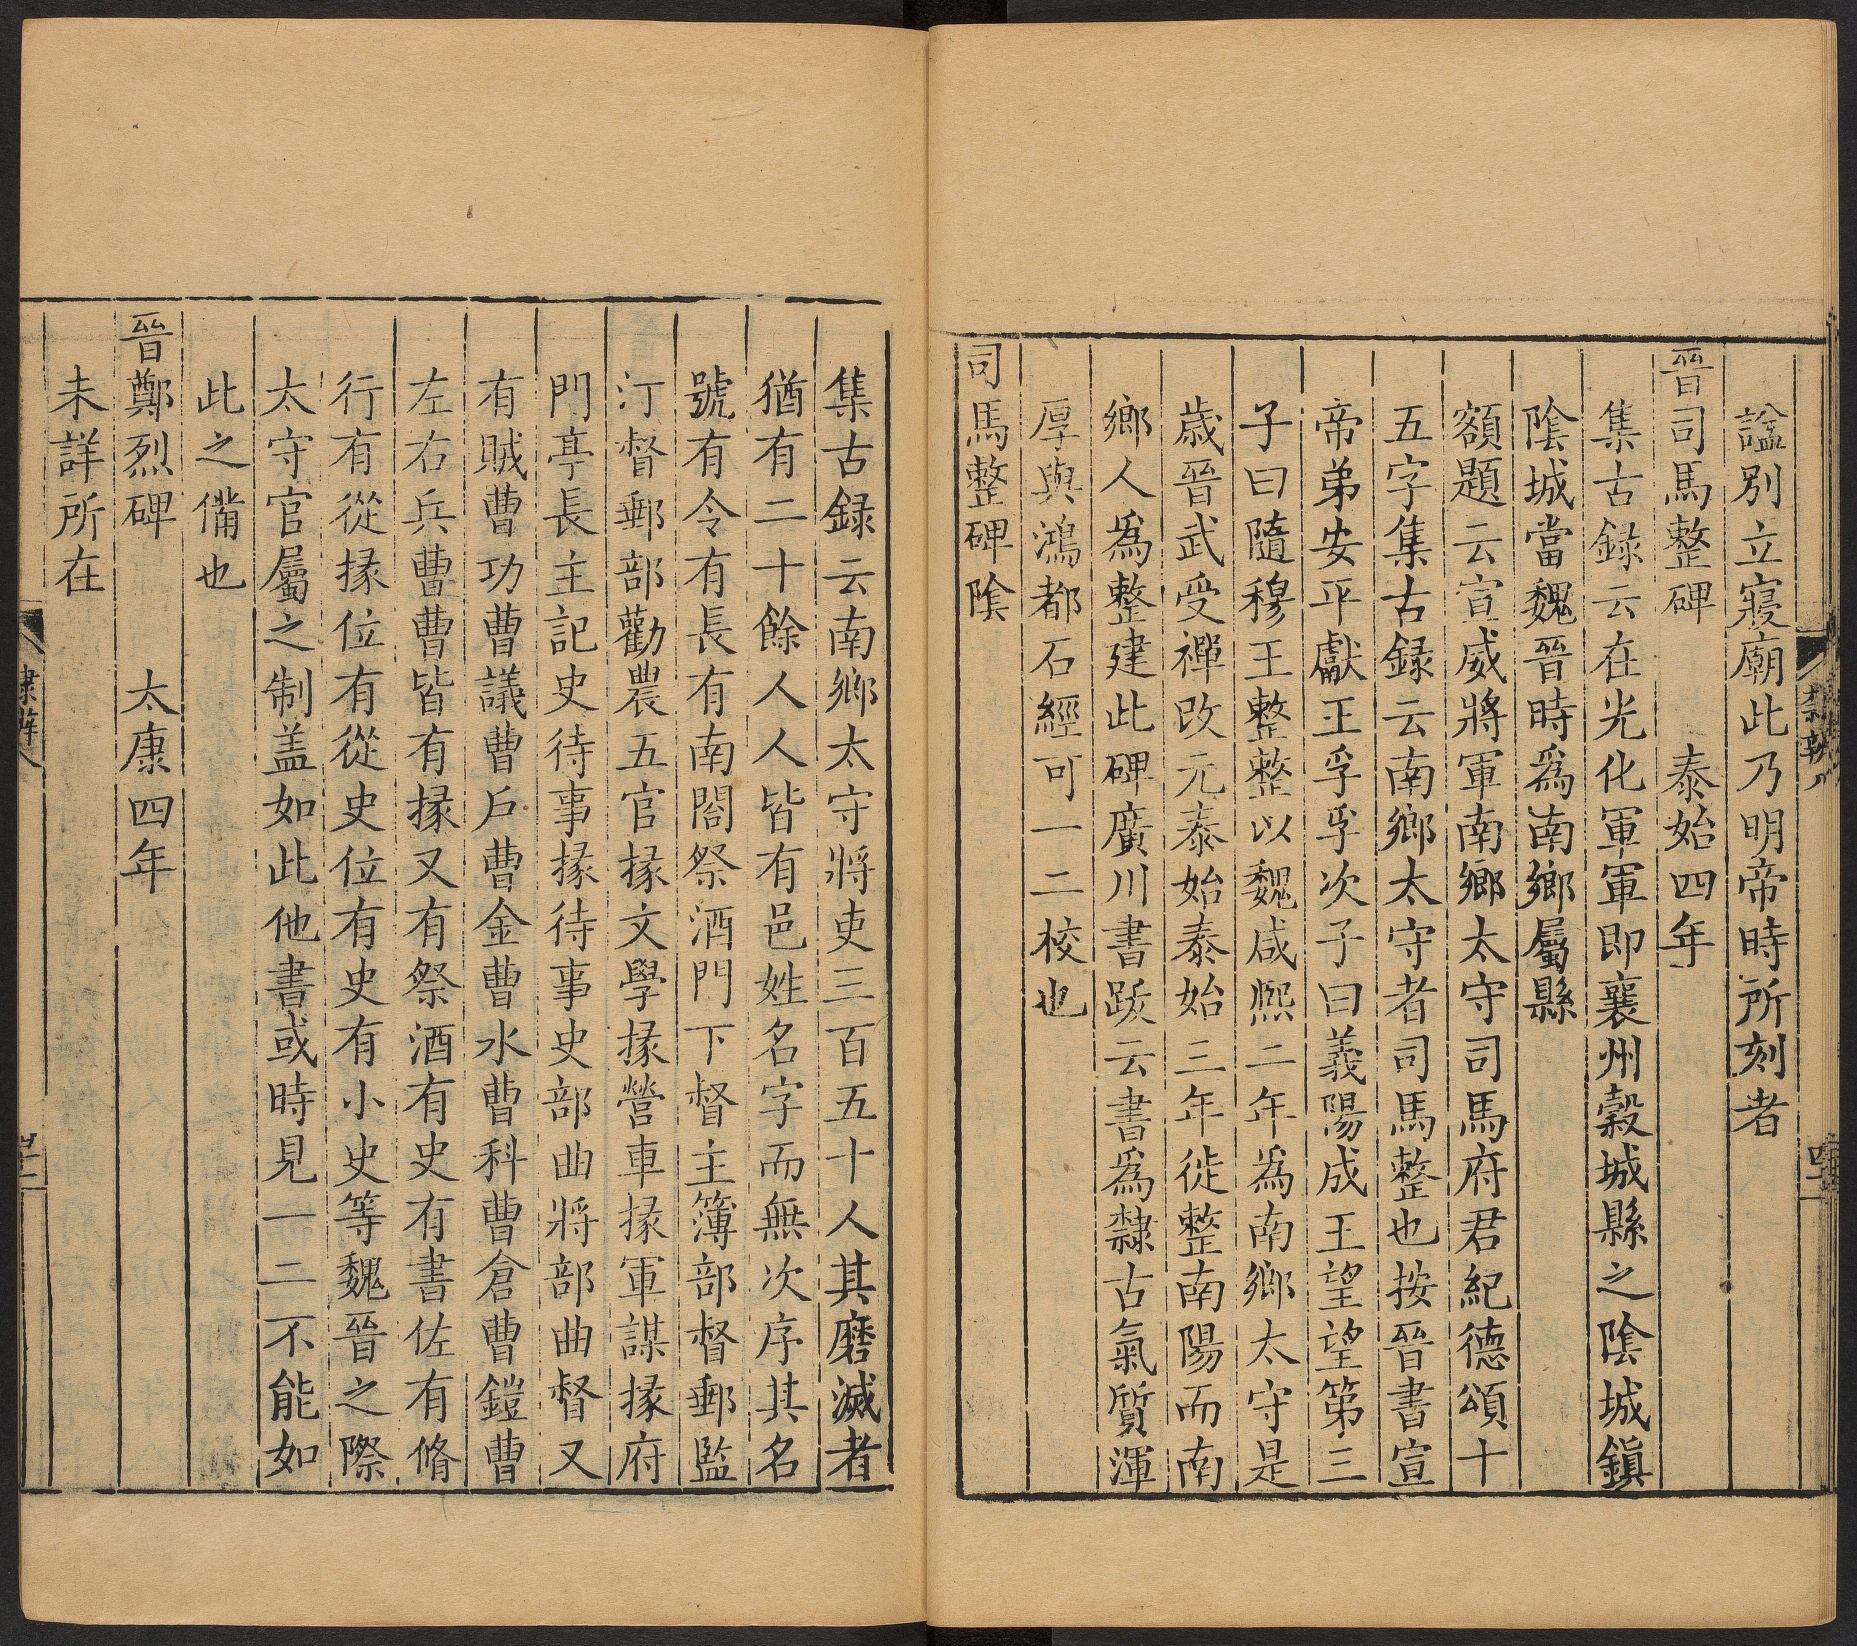 諡別立寢廟此乃明帝時所刻者
晉司馬整碑　泰始四年
集古録云在光化軍軍即襄州穀城縣之陰城鎮
陰城當魏晉時爲南鄉屬縣
額題云宣威將軍南鄉太守司馬府君紀德頌十
五字集古録云南鄉太守者司馬整也按晉書宣
帝弟安平獻王孚孚次子曰義陽成王望望第三
子曰隨穆王整整以魏咸熙二年為南鄉太守是
歲晉武受禪改元泰始泰始三年徙整南陽而南
鄉人爲整建此碑廣川書跋云書爲隸古氣質渾
厚與鴻都石經可一二校也
司馬整碑陰
集古録云南鄉太守將吏三百五十人其磨滅者
猶有二十餘人人皆有邑姓名字而無次序其名
號有令有長有南閤祭酒門下督主簿部督郵監
汀督郵部勸農五官掾文學掾營車掾軍謀掾府
門亭長主記史待事掾待事史部曲將部曲督又
有賊曹功曹議曹戶曹金曹水曹科曹倉曹鎧曹
左右兵曹曹皆有掾又有祭酒有史有書佐有脩
行有從掾位有從史位有史有小史等魏晉之際
太守官屬之制盖如此他書或時見一二不能如
此之備也
晉鄭烈碑　太康四年
未詳所在